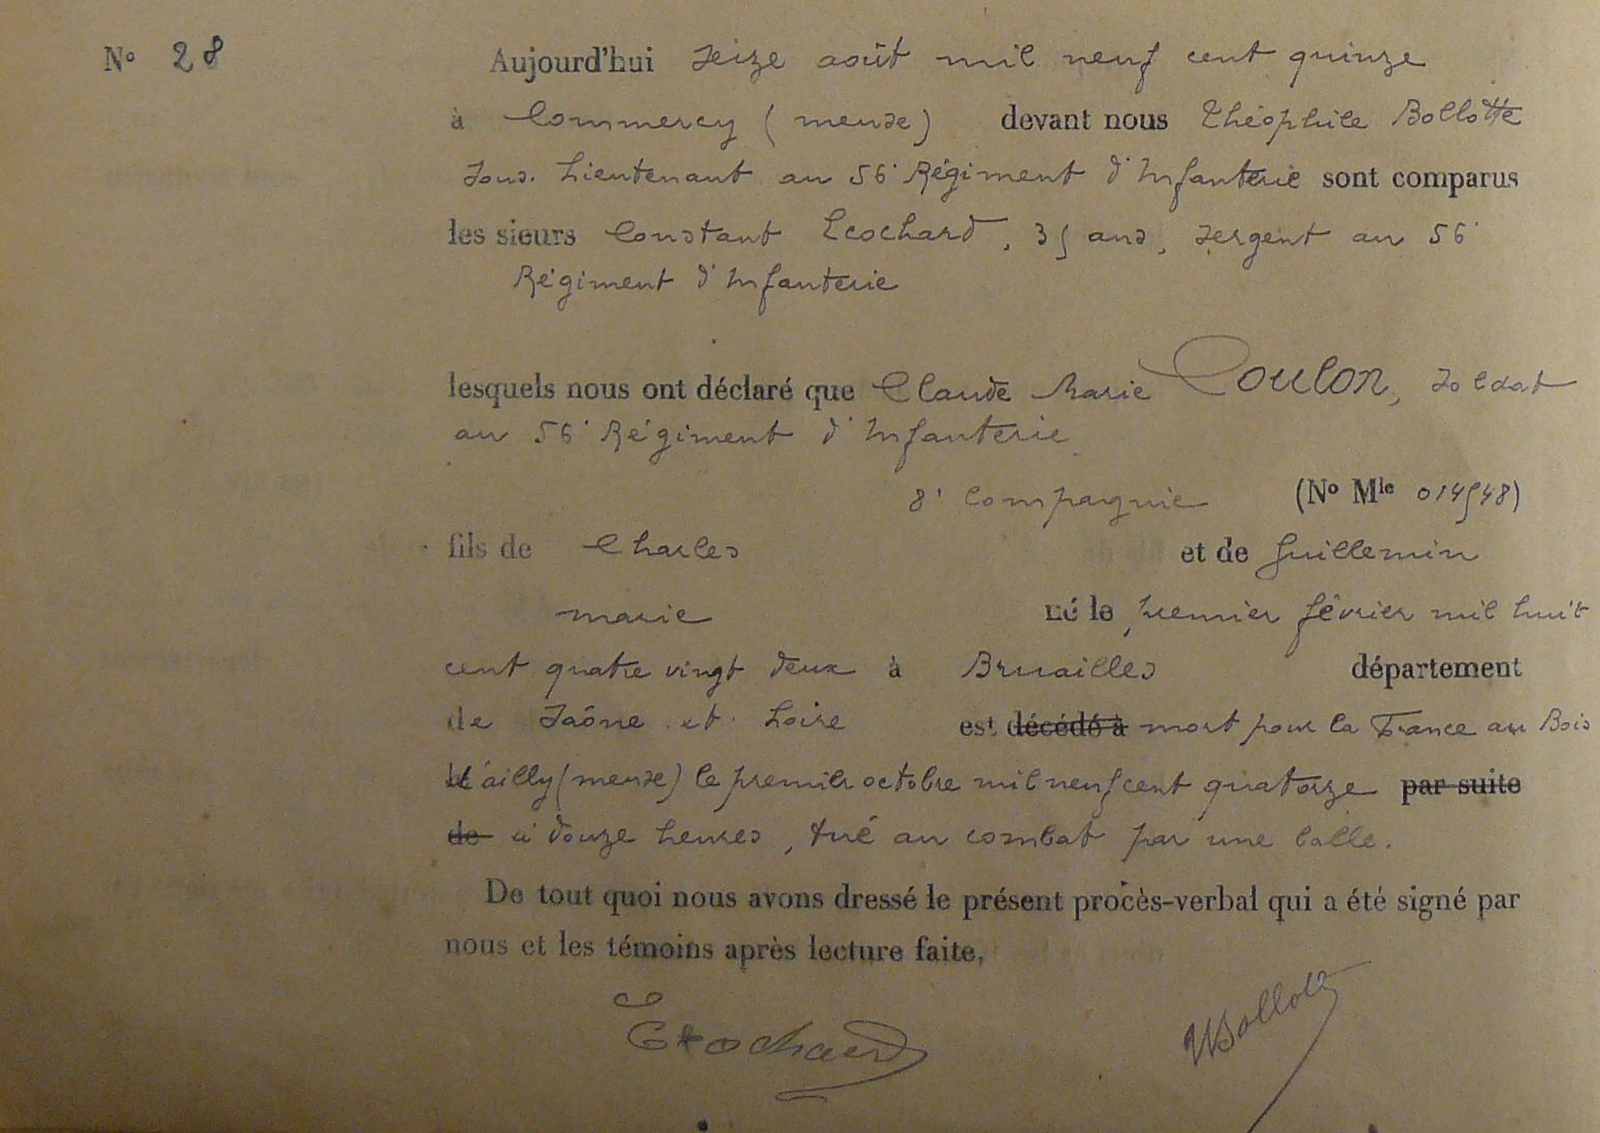 No 28
Aujourd'hui seize août mil neuf cent quinze
à Commercy (meuse) devant nous Théophile Bollotte
Sous. Lieutenant au 56e Régiment d'Infanterie sont comparus
les sieurs Constant Ecochard, 35 ans, sergent au 56e
Régiment d'Infanterie
lesquels nous ont déclaré que Claude Marie Coulon, soldat
au 56e Régiment d'Infanterie
8e Compagnie (No Mle 014548)
fils de Charles et de Guillemin
marie né le premier février mil huit
cent quatre vingt deux à Bruailles département
de Saône et Loire est décédé à mort pour la France au Bois
d'ailly (meuse) le premier octobre mil neuf cent quatorze par suite
de à douze heures, tué au combat par une balle.
De tout quoi nous avons dressé le présent procès-verbal qui a été signé par
nous et les témoins après lecture faite,
Ecochard
Bollotte